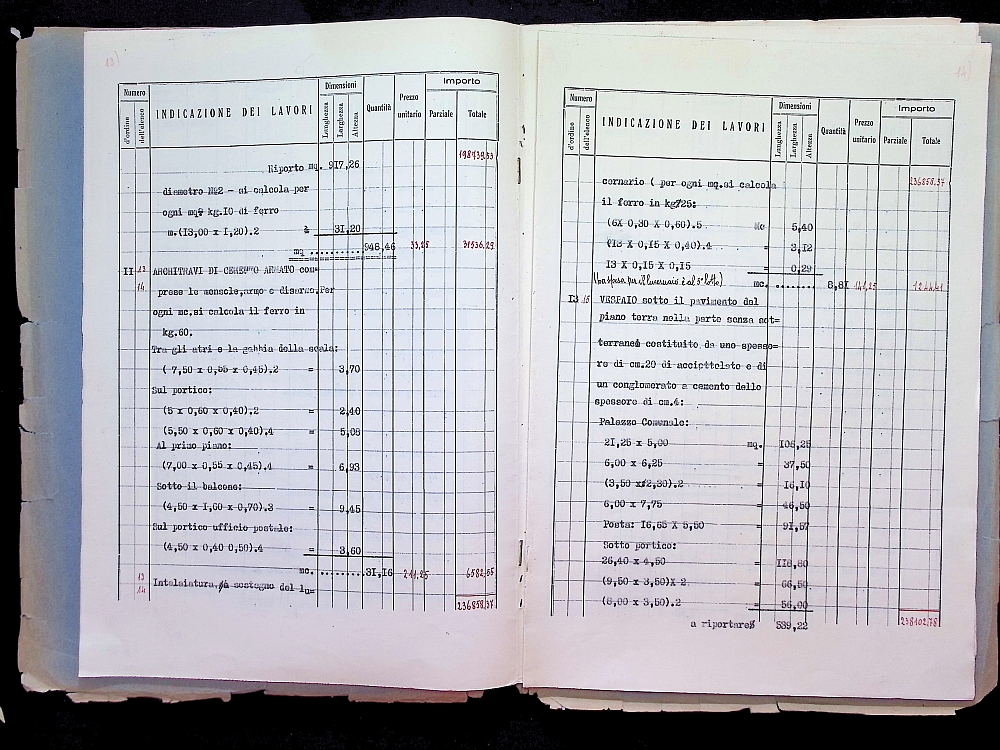 13)
Numero
d'ordine
dell'elenco
INDICAZIONE DEI LAVORI
Dimensioni
Lunghezza
Larghezza
Altezza
Quantità
Prezzo
unitario
Importo
Parziale
Totale
Riporto mq. 917,26 198439,53
diametro N°2 - si calcola per
ogni mq. kg.IO di ferro
m.(I3,00 x I,20).2 = 3I,20
mq ......... 948,46 33,25 31536,29
II 13 ARCHITRAVI DI CEMENTO ARMATO com=
14 prese le mensole,armo e disarmo.Per
ogni mc.si calcola il ferro in
kg.60.
Tra gli atri e la gabbia della scala:
( 7,50 x 0,55 x 0,45).2 = 3,70
Sul portico:
(5 x 0,60 x 0,40).2 = 2,40
(5,50 x 0,60 x 0,40).4 = 5,08
Al primo piano:
(7,00 x 0,55 x 0,45).4 = 6,93
Sotto il balcone:
(4,50 x I,60 x 0,70).3 = 9,45
Sul portico ufficio postale:
(4,50 x 0,40 0,50).4 = 3,60
mc. ........ 3I,I6 211,25 6582,55
13 Intelaiatura a sostegno del lu=
14
236858,37
14)
Numero
d'ordine
dell'elenco
INDICAZIONE DEI LAVORI
Dimensioni
Lunghezza
Larghezza
Altezza
Quantità
Prezzo
unitario
Importo
Parziale
Totale
236858,37
cernario ( per ogni mq.si calcola
il ferro in kg.25:
(6X 0,30 X 0,60).5 Mc 5,40
(I3 X 0,I5 X 0,40).4 = 3,I2
I3 X 0,I5 X 0,I5 = 0,29
(la spesa per il lucernaio è al 5° lotto) mc. ........ 8,8I 141,25 1244,41
I3 15 VESPAIO sotto il pavimento del
piano terra nella parte senza sot=
terranei costituito da uno spesso=
re di cm.20 di acciottolato e di
un conglomerato a cemento dello
spessore di cm.4:
Palazzo Comunale:
2I,25 x 5,00 mq. I06,25
6,00 x 6,25 = 37,50
(3,50 x 2,30).2 = I6,I0
6,00 x 7,75 = 46,50
Posta: I6,65 X 5,50 = 9I,57
Sotto portico:
26,40 x 4,50 = II8,80
(9,50 x 3,50)X 2 = 66,50
(8,00 x 3,50).2 = 56,00
238102,78
a riportare 539,22